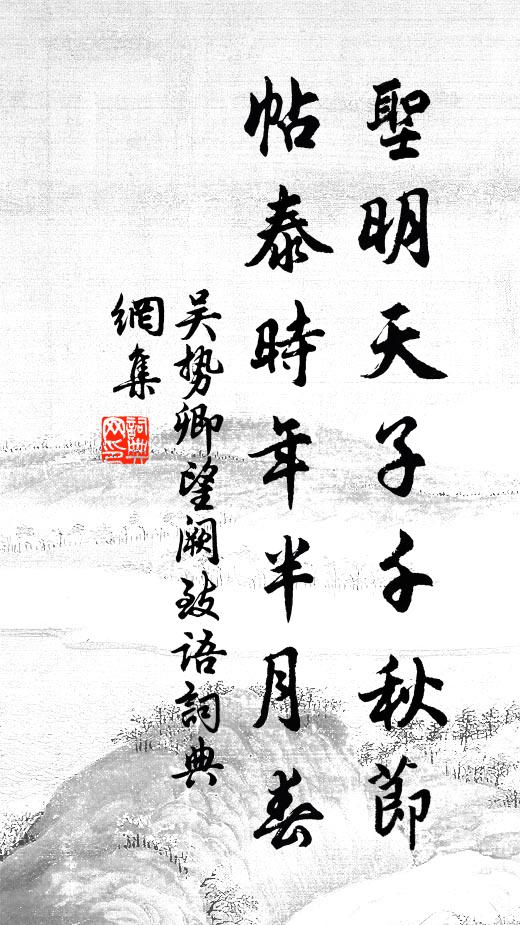 聖明天子千秋節
帖泰時年半月春
吴势卿望阙致语詞典
網集
詞典
网印